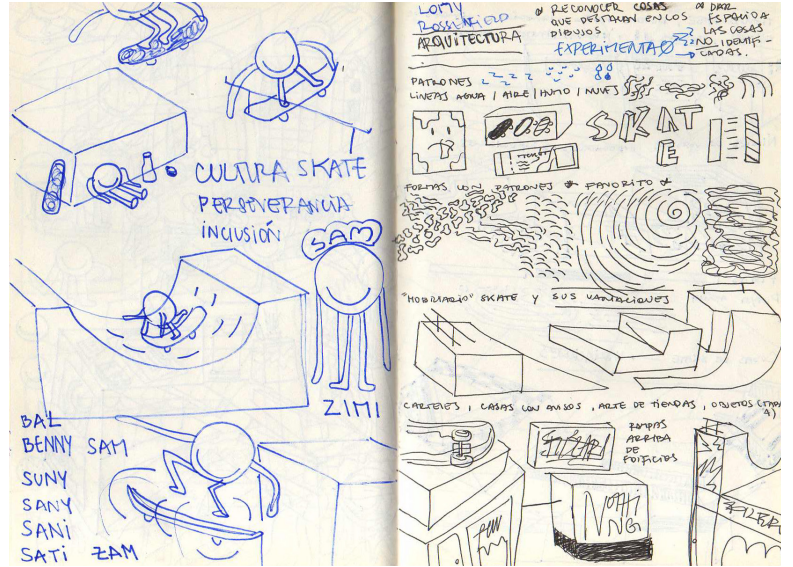 CULTURA SKATE
PERSEVERANCIA
INCLUSIÓN
SAM
ZIMI
BAL
BENNY SAM
SUNY
SANY
SANI
SATI ZAM
LOMY
ROSSENFIELD
ARQUITECTURA
RECONOCER COSAS
QUE DESTACAN EN LOS
DIBUJOS.
EXPERIMENTA
DAR
ESPACIO A
LAS COSAS
NO IDENTIFI-
CADAS.
PATRONES
LINEAS AGUA / AIRE / HUMO / NUBES
SKATE
FORMAS CON PATRONES * FAVORITO *
"MOBILIARIO" SKATE Y SUS VARIACIONES
CARTELES, CASAS CON AVISOS, ARTE DE TIENDAS, OBJETOS
RAMPAS
ARRIBA
DE
EDIFICIOS
FUN
NOTHI
NG